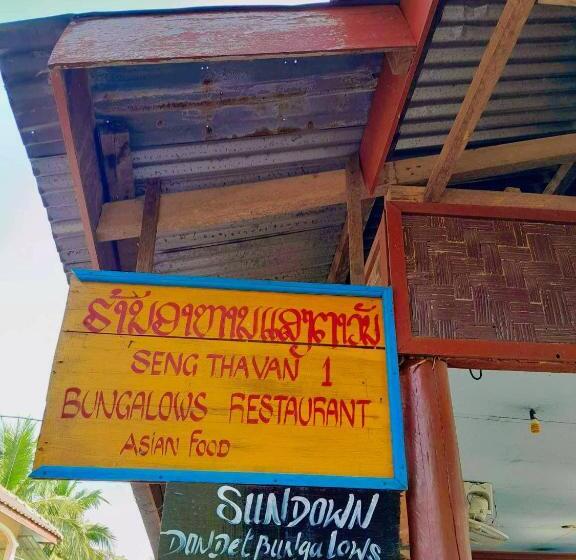 ຮ້ານອາຫານແສງຕາວັນ
SENG THAVAN 1
BUNGALOWS RESTAURANT
ASIAN FOOD
SUNDOWN
DONDET BUNGALOWS